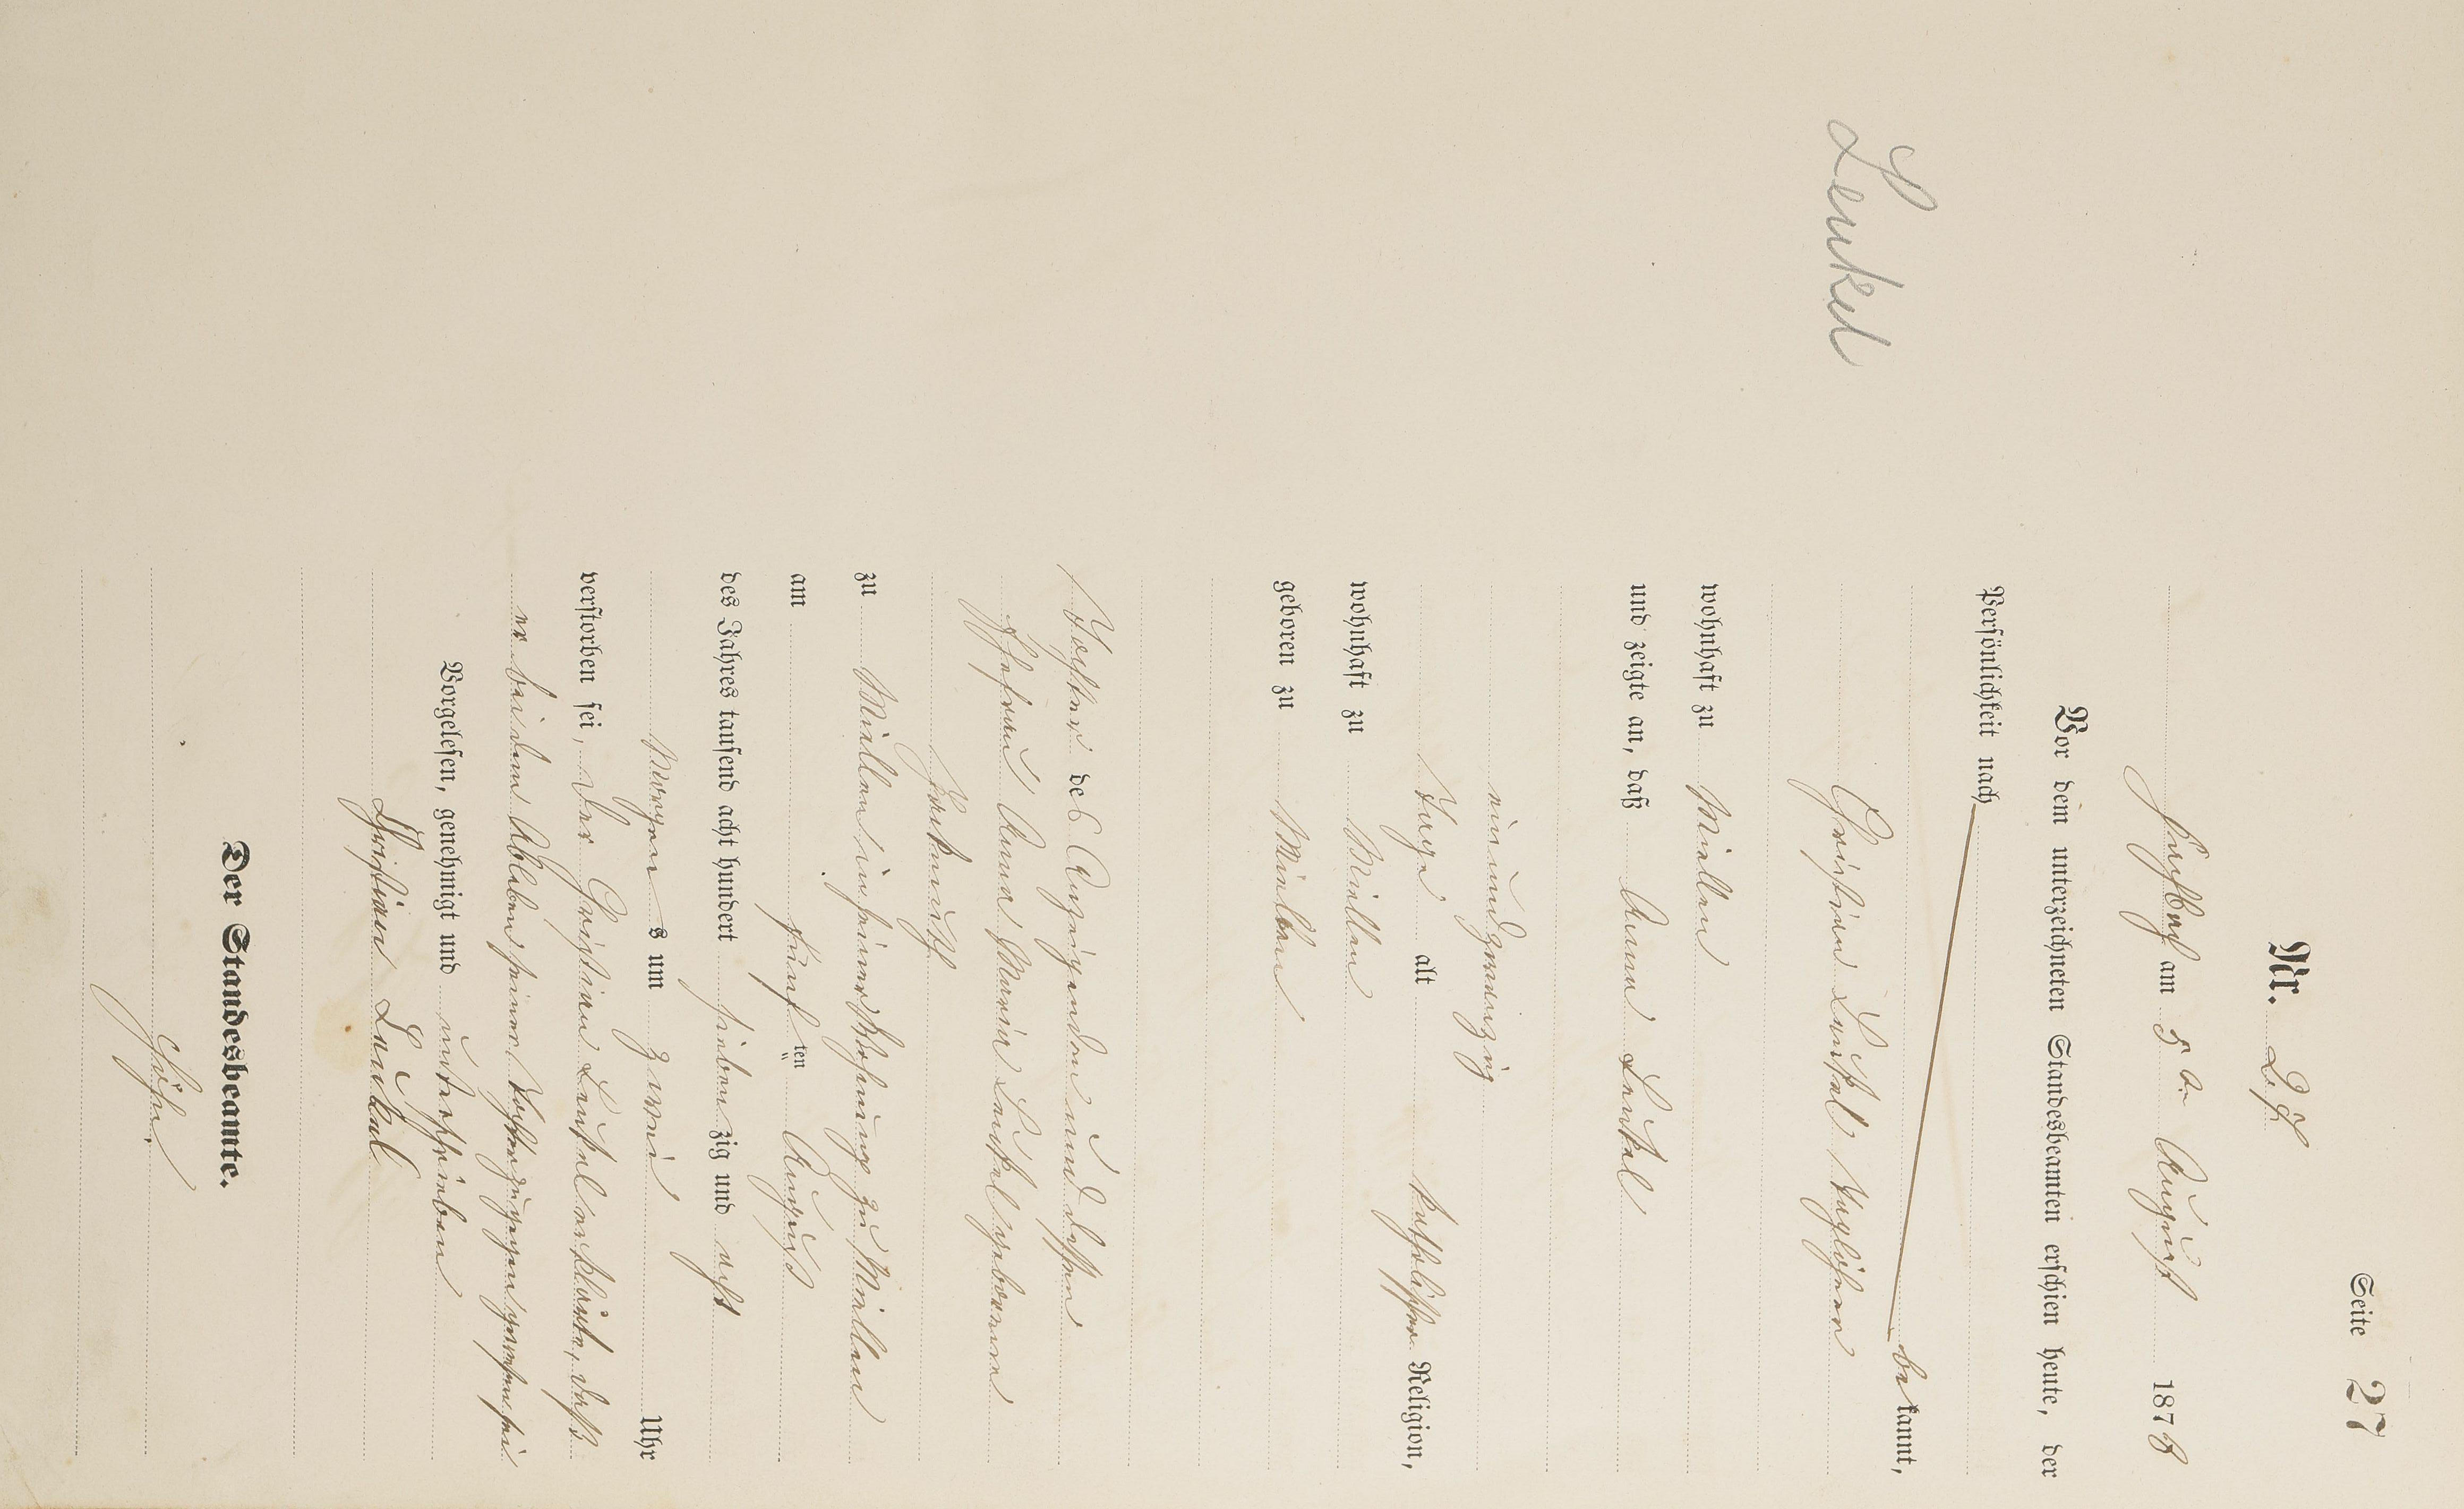 Seite 27
Nr. 27
Fachbach am 5ten August 1878
Vor dem unterzeichneten Standesbeamten erschien heute, der
Persönlichkeit nach
bekannt,
Christian Lenkel Taglöhner
wohnhaft zu Miellen
und zeigte an, daß Anna Lenkel
einundzwanzig
Tage alt katholischer Religion,
wohnhaft zu Miellen
geboren zu Miellen
Tochter des Anzeigenden und dessen
Ehefrau Anna Maria Lenkel geborene
zu Miellen in seiner Wohnung zu Miellen
am fünften August
des Jahres tausend acht hundert siebenzig und acht
Morgens um zwei Uhr
verstorben sei, der Christian Lenkel erklärte, daß
er bei dem Ableben seiner Tochter zugegen gewesen sei
Vorgelesen, genehmigt und unterschrieben
Christian Lenkel
Der Standesbeamte.
Lenkel